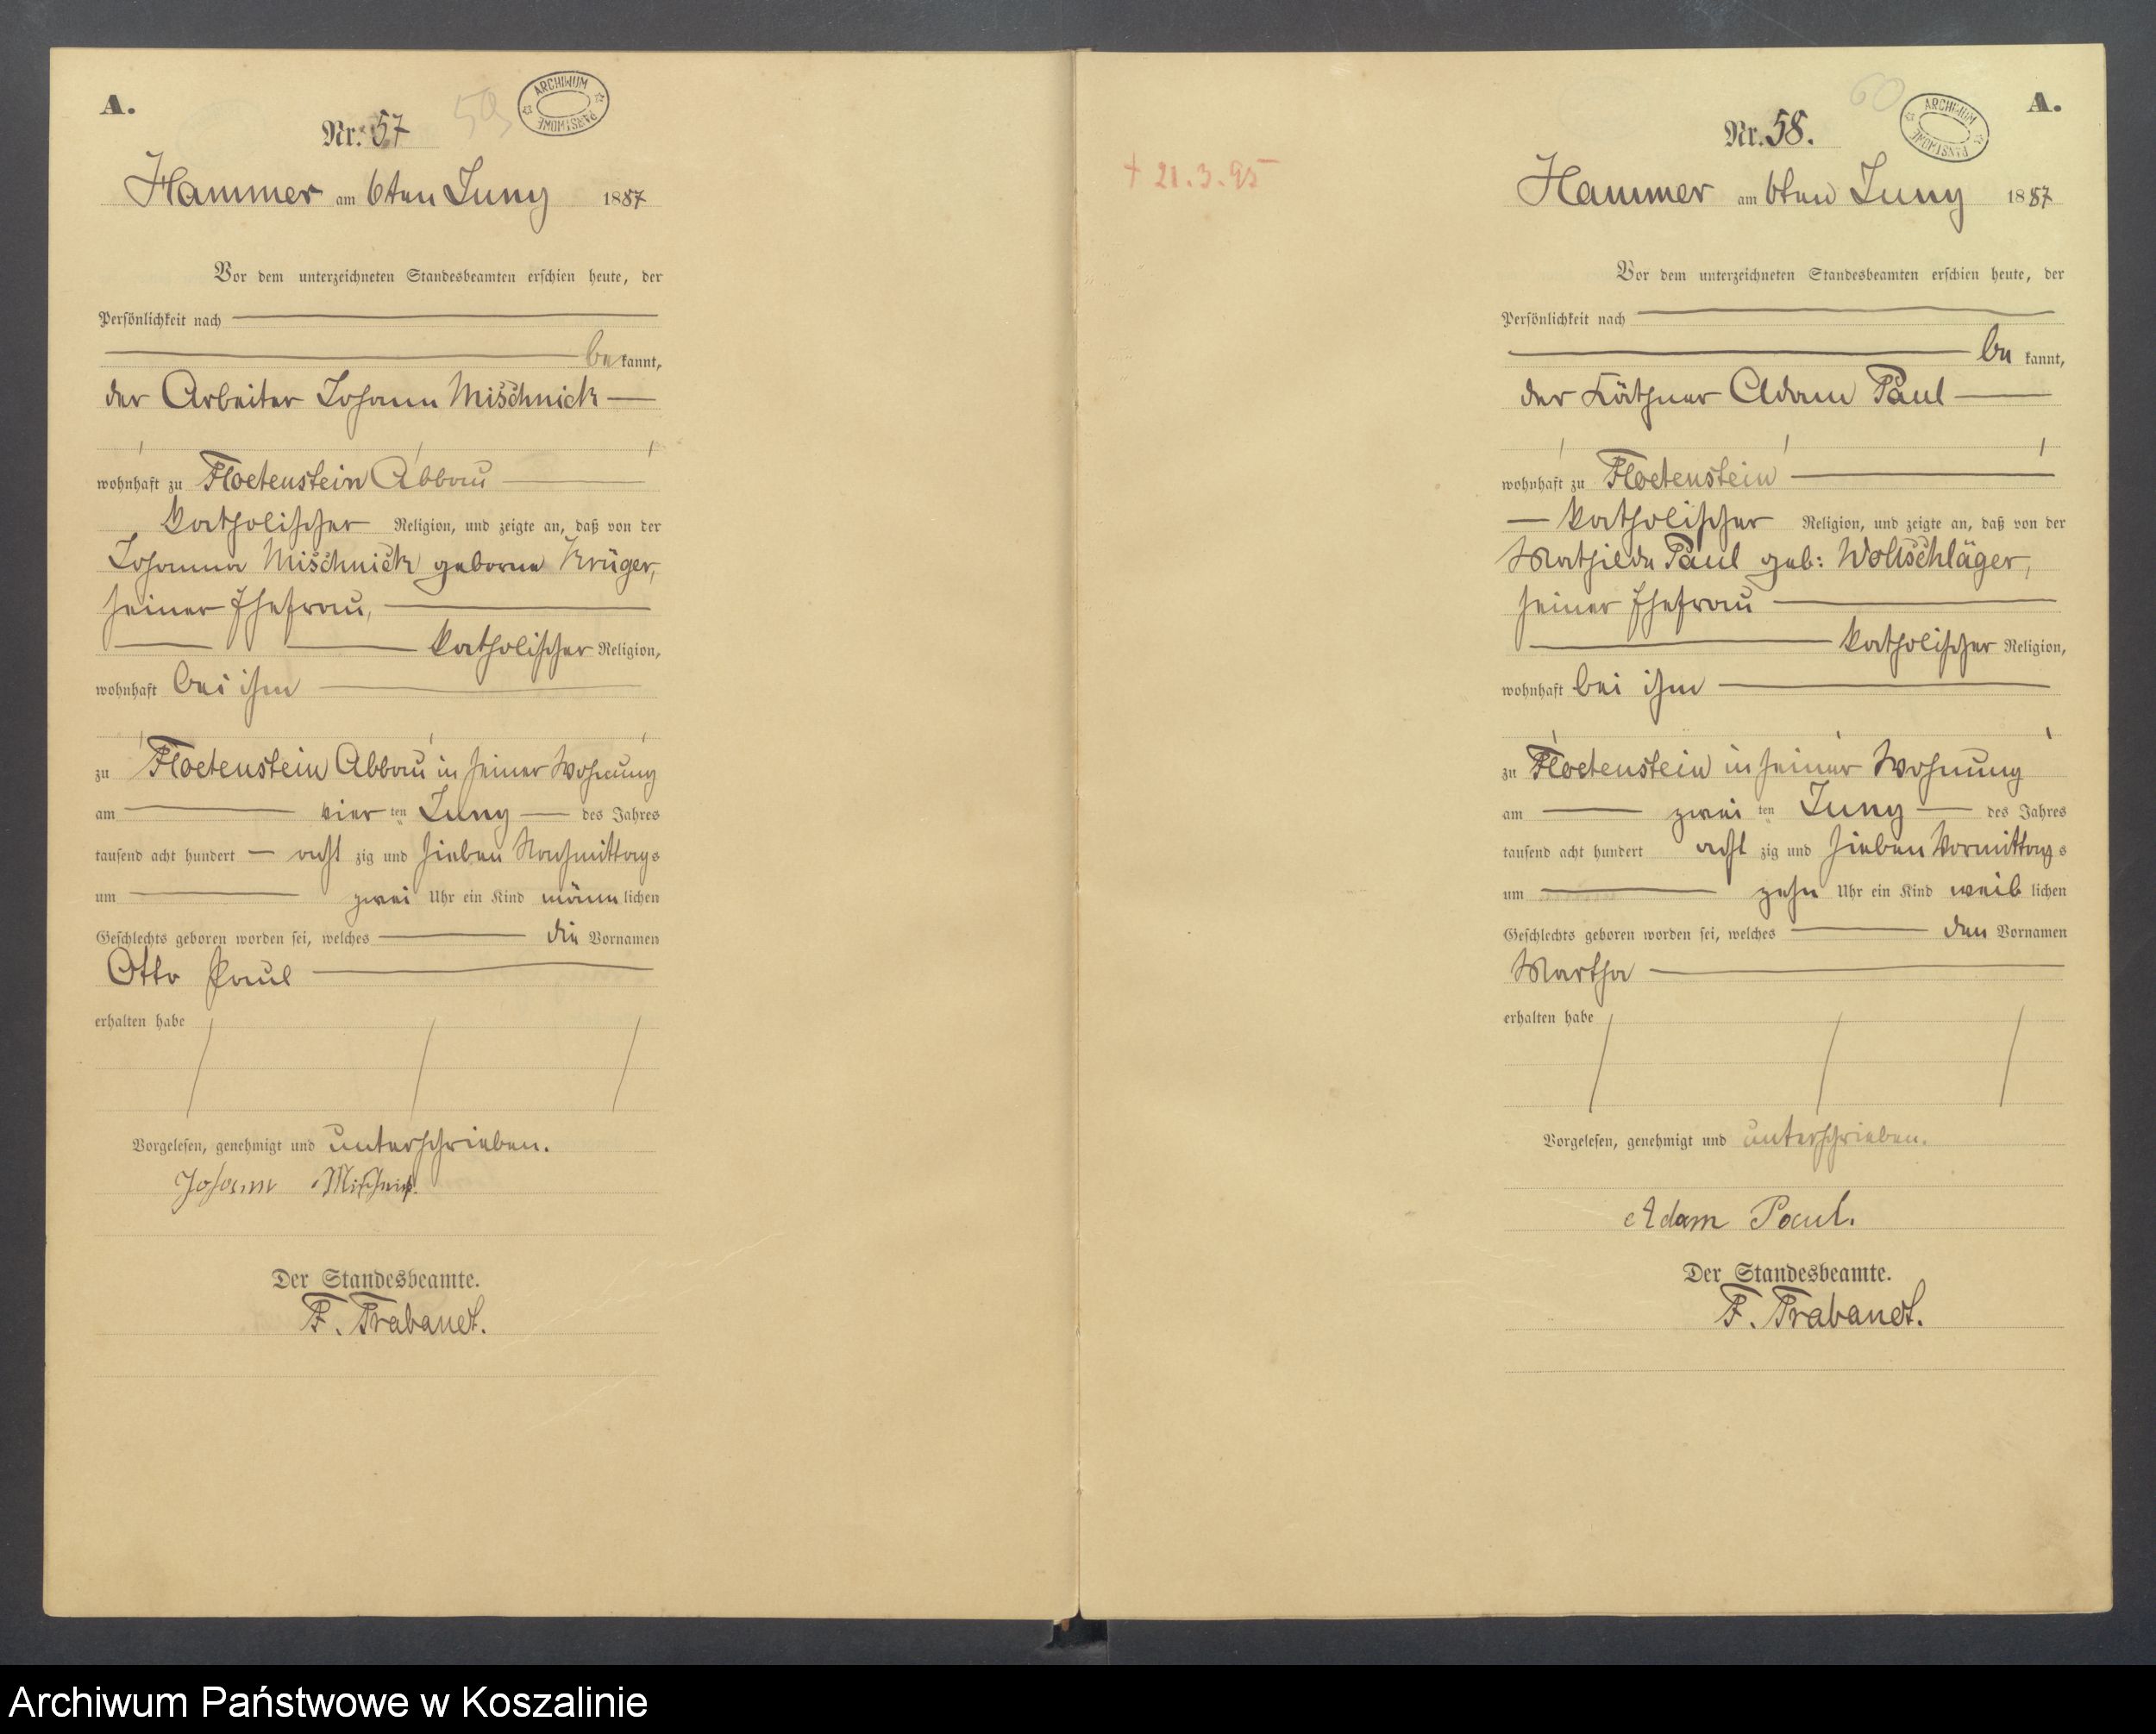 A.
Nr. 57
59
ARCHIWUM PAŃSTWOWE
Hammer am 6ten Juny 1887
Vor dem unterzeichneten Standesbeamten erschien heute, der
Persönlichkeit nach
be kannt,
der Arbeiter Johann Mischnick
wohnhaft zu Floetenstein Abbau
katholischer Religion, und zeigte an, daß von der
Johanna Mischnick geborne Krüger,
seiner Ehefrau,
katholischer Religion,
wohnhaft bei ihm
zu Floetenstein Abbau in seiner Wohnung
am vier ten Juny des Jahres
tausend acht hundert acht zig und sieben Nachmittags
um zwei Uhr ein Kind männ lichen
Geschlechts geboren worden sei, welches die Vornamen
Otto Paul
erhalten habe
Vorgelesen, genehmigt und unterschrieben.
Johann Mischnick
Der Standesbeamte.
F. Trabandt.
A.
Nr. 58.
60
ARCHIWUM PAŃSTWOWE
† 21.3.95
Hammer am 6ten Juny 1887
Vor dem unterzeichneten Standesbeamten erschien heute, der
Persönlichkeit nach
be kannt,
der Käthner Adam Paul
wohnhaft zu Floetenstein
katholischer Religion, und zeigte an, daß von der
Mathilde Paul geb: Wollschläger,
seiner Ehefrau
katholischer Religion,
wohnhaft bei ihm
zu Floetenstein in seiner Wohnung
am zwei ten Juny des Jahres
tausend acht hundert acht zig und sieben Vormittags
um zehn Uhr ein Kind weib lichen
Geschlechts geboren worden sei, welches den Vornamen
Martha
erhalten habe
Vorgelesen, genehmigt und unterschrieben.
Adam Paul.
Der Standesbeamte.
F. Trabandt.
Archiwum Państwowe w Koszalinie